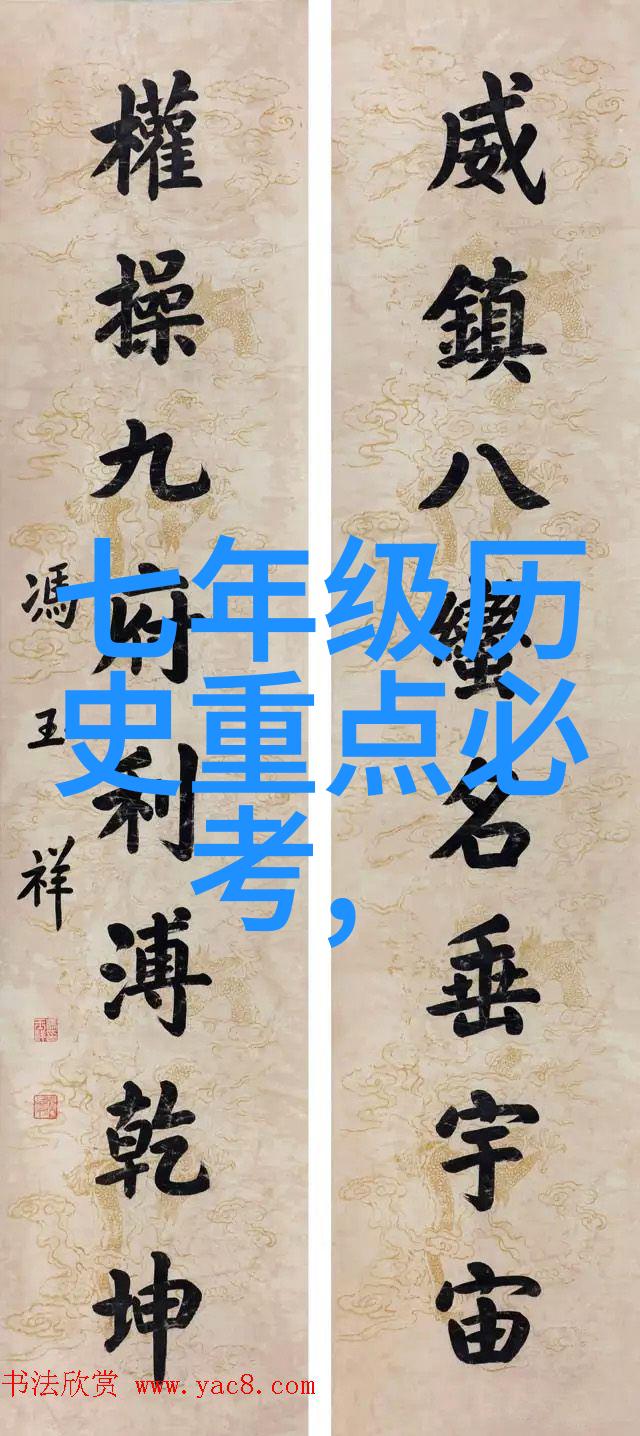 威鎮八蠻名垂宇宙
權操九府利溥乾坤
馮玉祥
七年级历
史重点必
考，
书法欣赏 www.yac8.com